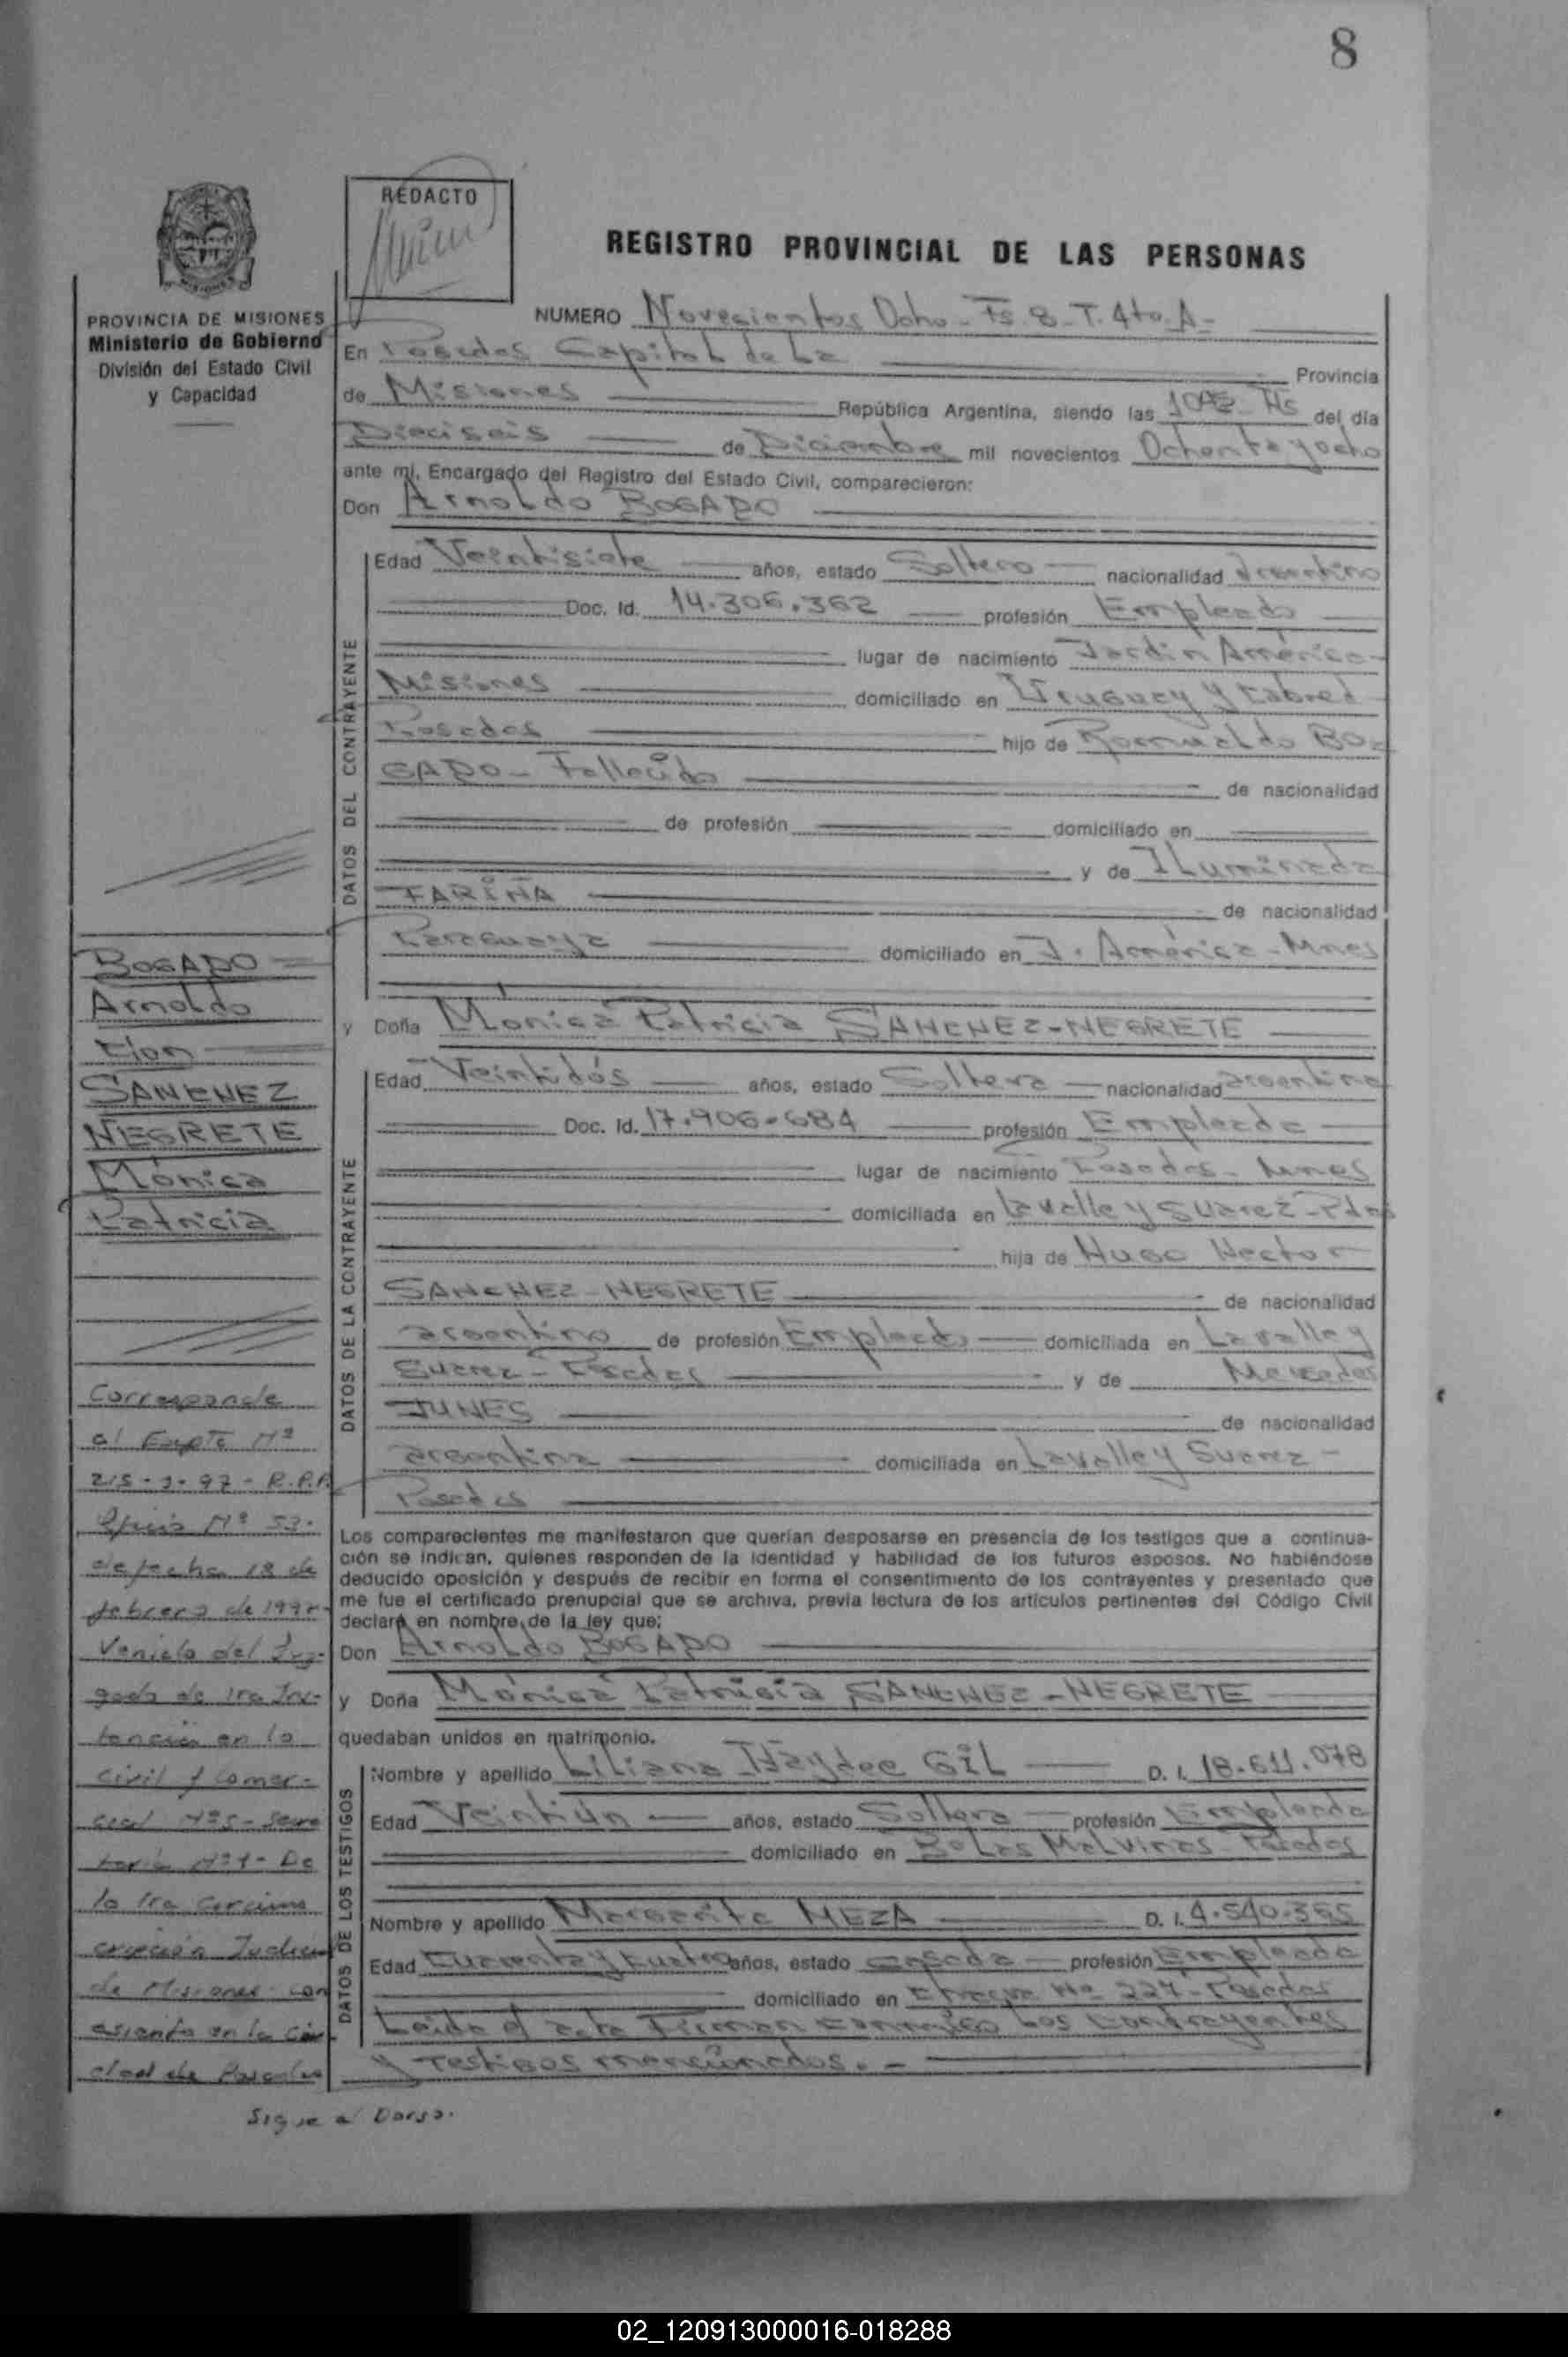 8
REDACTO
REGISTRO PROVINCIAL DE LAS PERSONAS
PROVINCIA DE MISIONES
Ministerio de Gobierno
División del Estado Civil
y Capacidad
NUMERO Novecientos Ocho - Fs. 8 - T. 4to. A -
En Posadas Capital de La Provincia
de Misiones República Argentina, siendo las Hs del día
Dieciseis de Diciembre mil novecientos Ochenta y ocho
ante mí, Encargado del Registro del Estado Civil, comparecieron:
Don Arnoldo BOGADO
DATOS DEL CONTRAYENTE
Edad Veintisiete años, estado Soltero nacionalidad argentino
Doc. Id. 14.306.362 profesión Empleado
lugar de nacimiento Jardín América-
Misiones domiciliado en Uruguay y Cabred
Posadas hijo de Romualdo BO-
GADO - Fallecido de nacionalidad
de profesión domiciliado en
y de ILuminada
FARIÑA de nacionalidad
Paraguaya domiciliado en J. América - Mnes
y Doña Mónica Patricia SANCHEZ-NEGRETE
DATOS DE LA CONTRAYENTE
Edad Veintidós años, estado Soltera nacionalidad argentina
Doc. Id. 17.906.684 profesión Empleada
lugar de nacimiento Posadas - Mnes
domiciliada en Lavalle y Suarez - Pdas
hija de Hugo Hector
SANCHEZ - NEGRETE de nacionalidad
argentino de profesión Empleado domiciliada en Lavalle y
Suarez - Posadas y de Mercedes
JUNES de nacionalidad
argentina domiciliada en Lavalle y Suarez -
Posadas
Los comparecientes me manifestaron que querían desposarse en presencia de los testigos que a continua-
ción se indican, quienes responden de la identidad y habilidad de los futuros esposos. No habiéndose
deducido oposición y después de recibir en forma el consentimiento de los contrayentes y presentado que
me fue el certificado prenupcial que se archiva, previa lectura de los artículos pertinentes del Código Civil
declaré en nombre de la ley que:
Don Arnoldo BOGADO
y Doña Mónica Patricia SANCHEZ - NEGRETE
quedaban unidos en matrimonio.
DATOS DE LOS TESTIGOS
Nombre y apellido Liliana Haydee GIL D. I. 18.611.078
Edad Veintiún años, estado Soltera profesión Empleada
domiciliado en Malvinas - Posadas
Nombre y apellido Margarita MEZA D. I. 4.540.355
Edad Cuarenta y Cuatro años, estado Casada profesión Empleada
domiciliado en Nº 227 - Posadas
Leida el acta Firman conmigo Los Contrayentes
y Testigos mencionados. -
BOGADO
Arnoldo
Con
SANCHEZ
NEGRETE
Mónica
Patricia
Corresponde
al Expte Nº
Oficio Nº 53.
de fecha 18 de
febrero de
Venido del Juz-
gado de 1ra Ins-
tancia en lo
Civil y Comer-
cial Nº 5 - Secre
taría Nº 1 - De
la 1ra Circuns
cripción Judicial
de Misiones con
asiento en la Ciu
dad de Posadas
Sigue al Dorso.
02_120913000016-018288